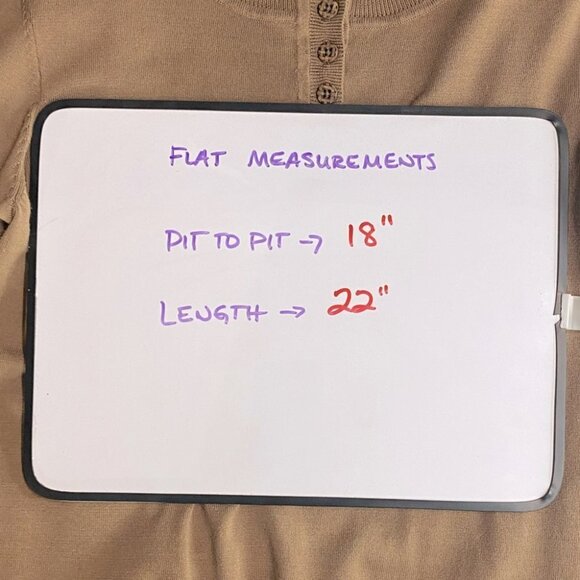 FLAT MEASUREMENTS
PIT TO PIT → 18"
LENGTH → 22"